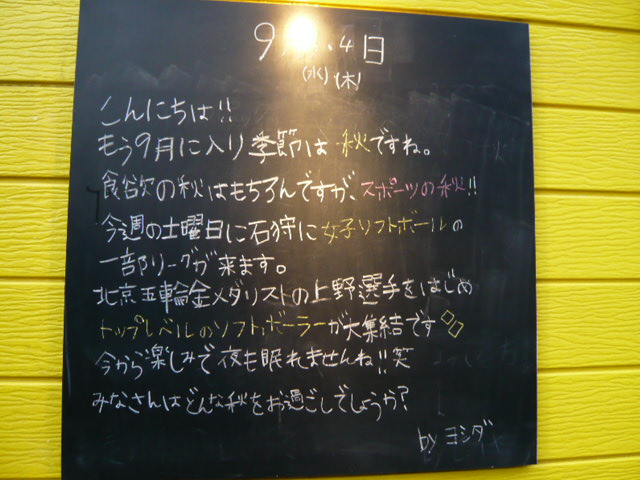 9月 .4日
(水)(木)
こんにちは!!
もう9月に入り季節は秋ですね。
食欲の秋はもちろんですが、スポーツの秋!!
今週の土曜日に石狩に女子ソフトボールの
一部リーグが来ます。
北京五輪金メダリストの上野選手をはじめ
トップレベルのソフトボーラーが大集結です
今から楽しみで夜も眠れませんね!!笑
みなさんはどんな秋をお過ごしでしょうか?
by ヨシダ